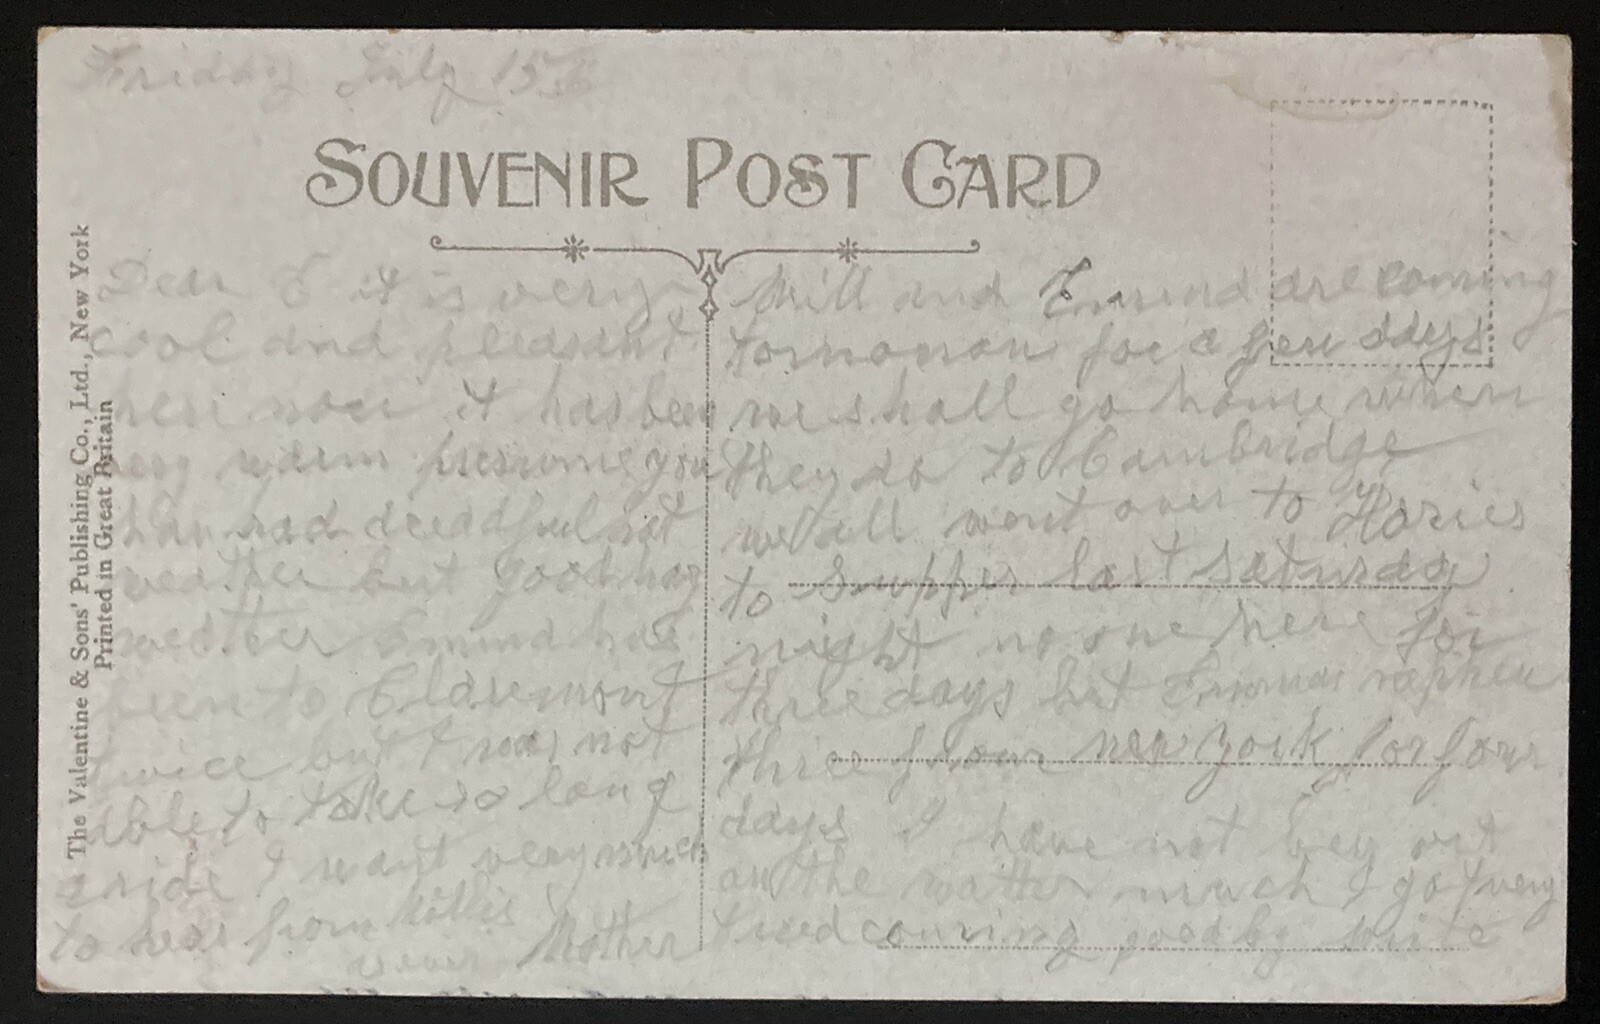 Friday July 15
SOUVENIR POST CARD
The Valentine & Sons' Publishing Co., Ltd., New York
Printed in Great Britain
Dear E it is very
cool and pleasant
here now it has been
very warm presume you
have had hot
weather but good hay
weather has
been to Claremont
twice but I was not
able to take so long
a ride I want very much
to hear from
as ever Mother
Will and are coming
tomorrow for a few days
we shall go home when
they do to Cambridge
we all went over to
to supper last Saturday
night no one here for
three days but
three from new york for four
days I have not out
on the watter much I got very
tired coming good by write